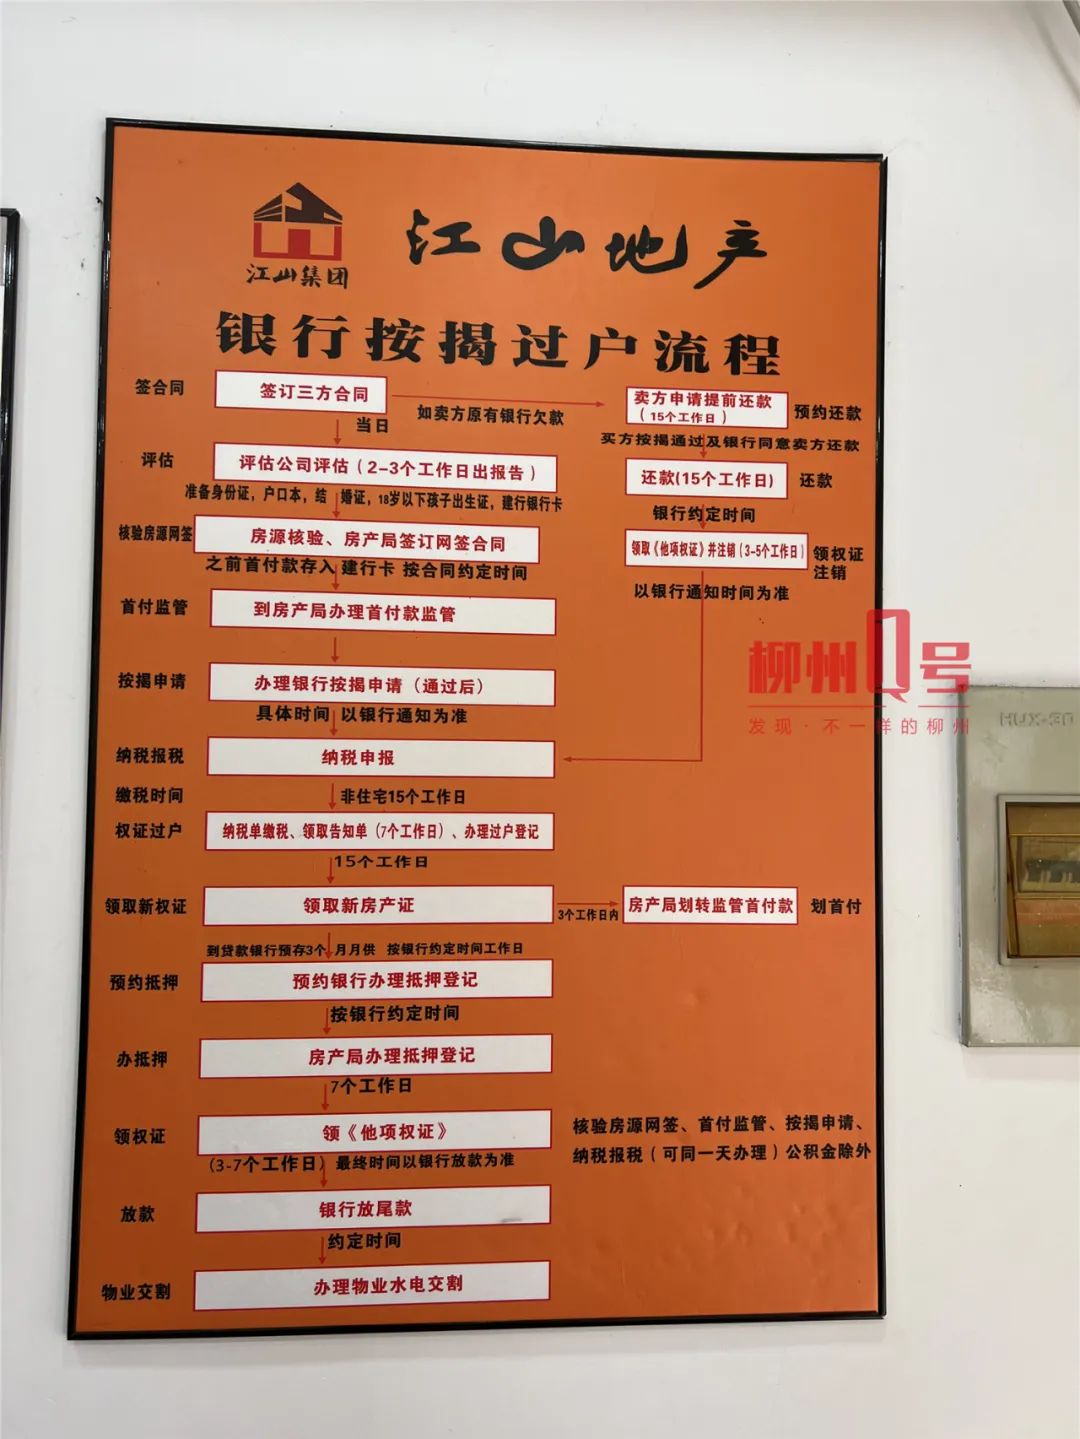 江山集团
江山地产
银行按揭过户流程
签合同
签订三方合同
如卖方原有银行欠款
卖方申请提前还款
(15个工作日)
预约还款
当日
买方按揭通过及银行同意卖方还款
评估
评估公司评估(2-3个工作日出报告)
还款(15个工作日)
还款
准备身份证,户口本,结 婚证,18岁以下孩子出生证,建行银行卡
银行约定时间
核验房源网签
房源核验、房产局签订网签合同
领取《他项权证》并注销(3-5个工作日)
领权证
注销
之前首付款存入 建行卡 按合同约定时间
以银行通知时间为准
首付监管
到房产局办理首付款监管
按揭申请
办理银行按揭申请(通过后)
具体时间 以银行通知为准
纳税报税
纳税申报
缴税时间
非住宅15个工作日
权证过户
纳税单缴税、领取告知单(7个工作日)、办理过户登记
15个工作日
领取新权证
领取新房产证
3个工作日内
房产局划转监管首付款
划首付
到贷款银行预存3个 月月供 按银行约定时间工作日
预约抵押
预约银行办理抵押登记
按银行约定时间
办抵押
房产局办理抵押登记
7个工作日
领权证
领《他项权证》
(3-7个工作日) 最终时间以银行放款为准
核验房源网签、首付监管、按揭申请、
纳税报税(可同一天办理)公积金除外
放款
银行放尾款
约定时间
物业交割
办理物业水电交割
柳州Q号
发现·不一样的柳州